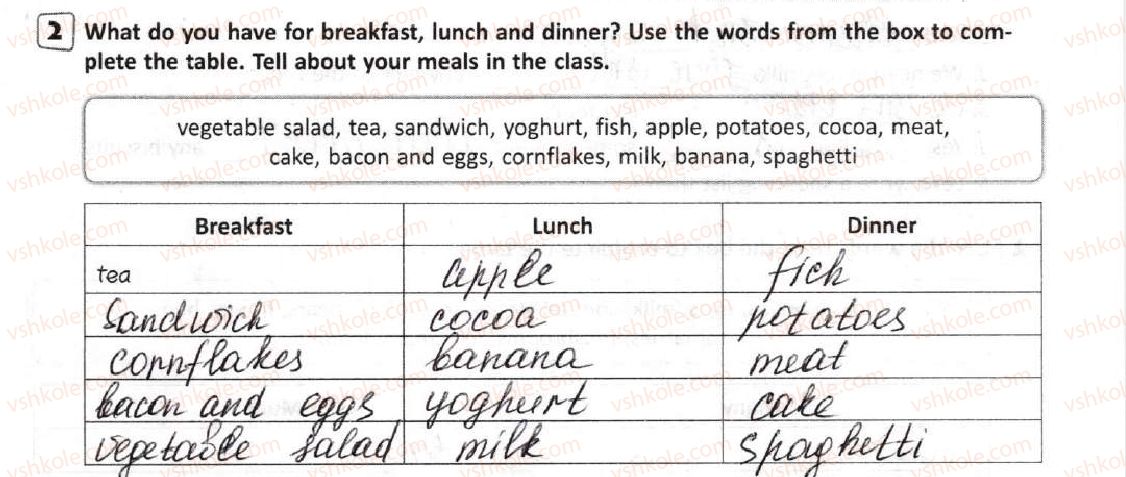 2 What do you have for breakfast, lunch and dinner? Use the words from the box to com-
plete the table. Tell about your meals in the class.
vegetable salad, tea, sandwich, yoghurt, fish, apple, potatoes, cocoa, meat,
cake, bacon and eggs, cornflakes, milk, banana, spaghetti
Breakfast Lunch Dinner
tea apple fich
sandwich cocoa potatoes
cornflakes banana meat
bacon and eggs yoghurt cake
vegetable salad milk spaghetti
vshkole.com